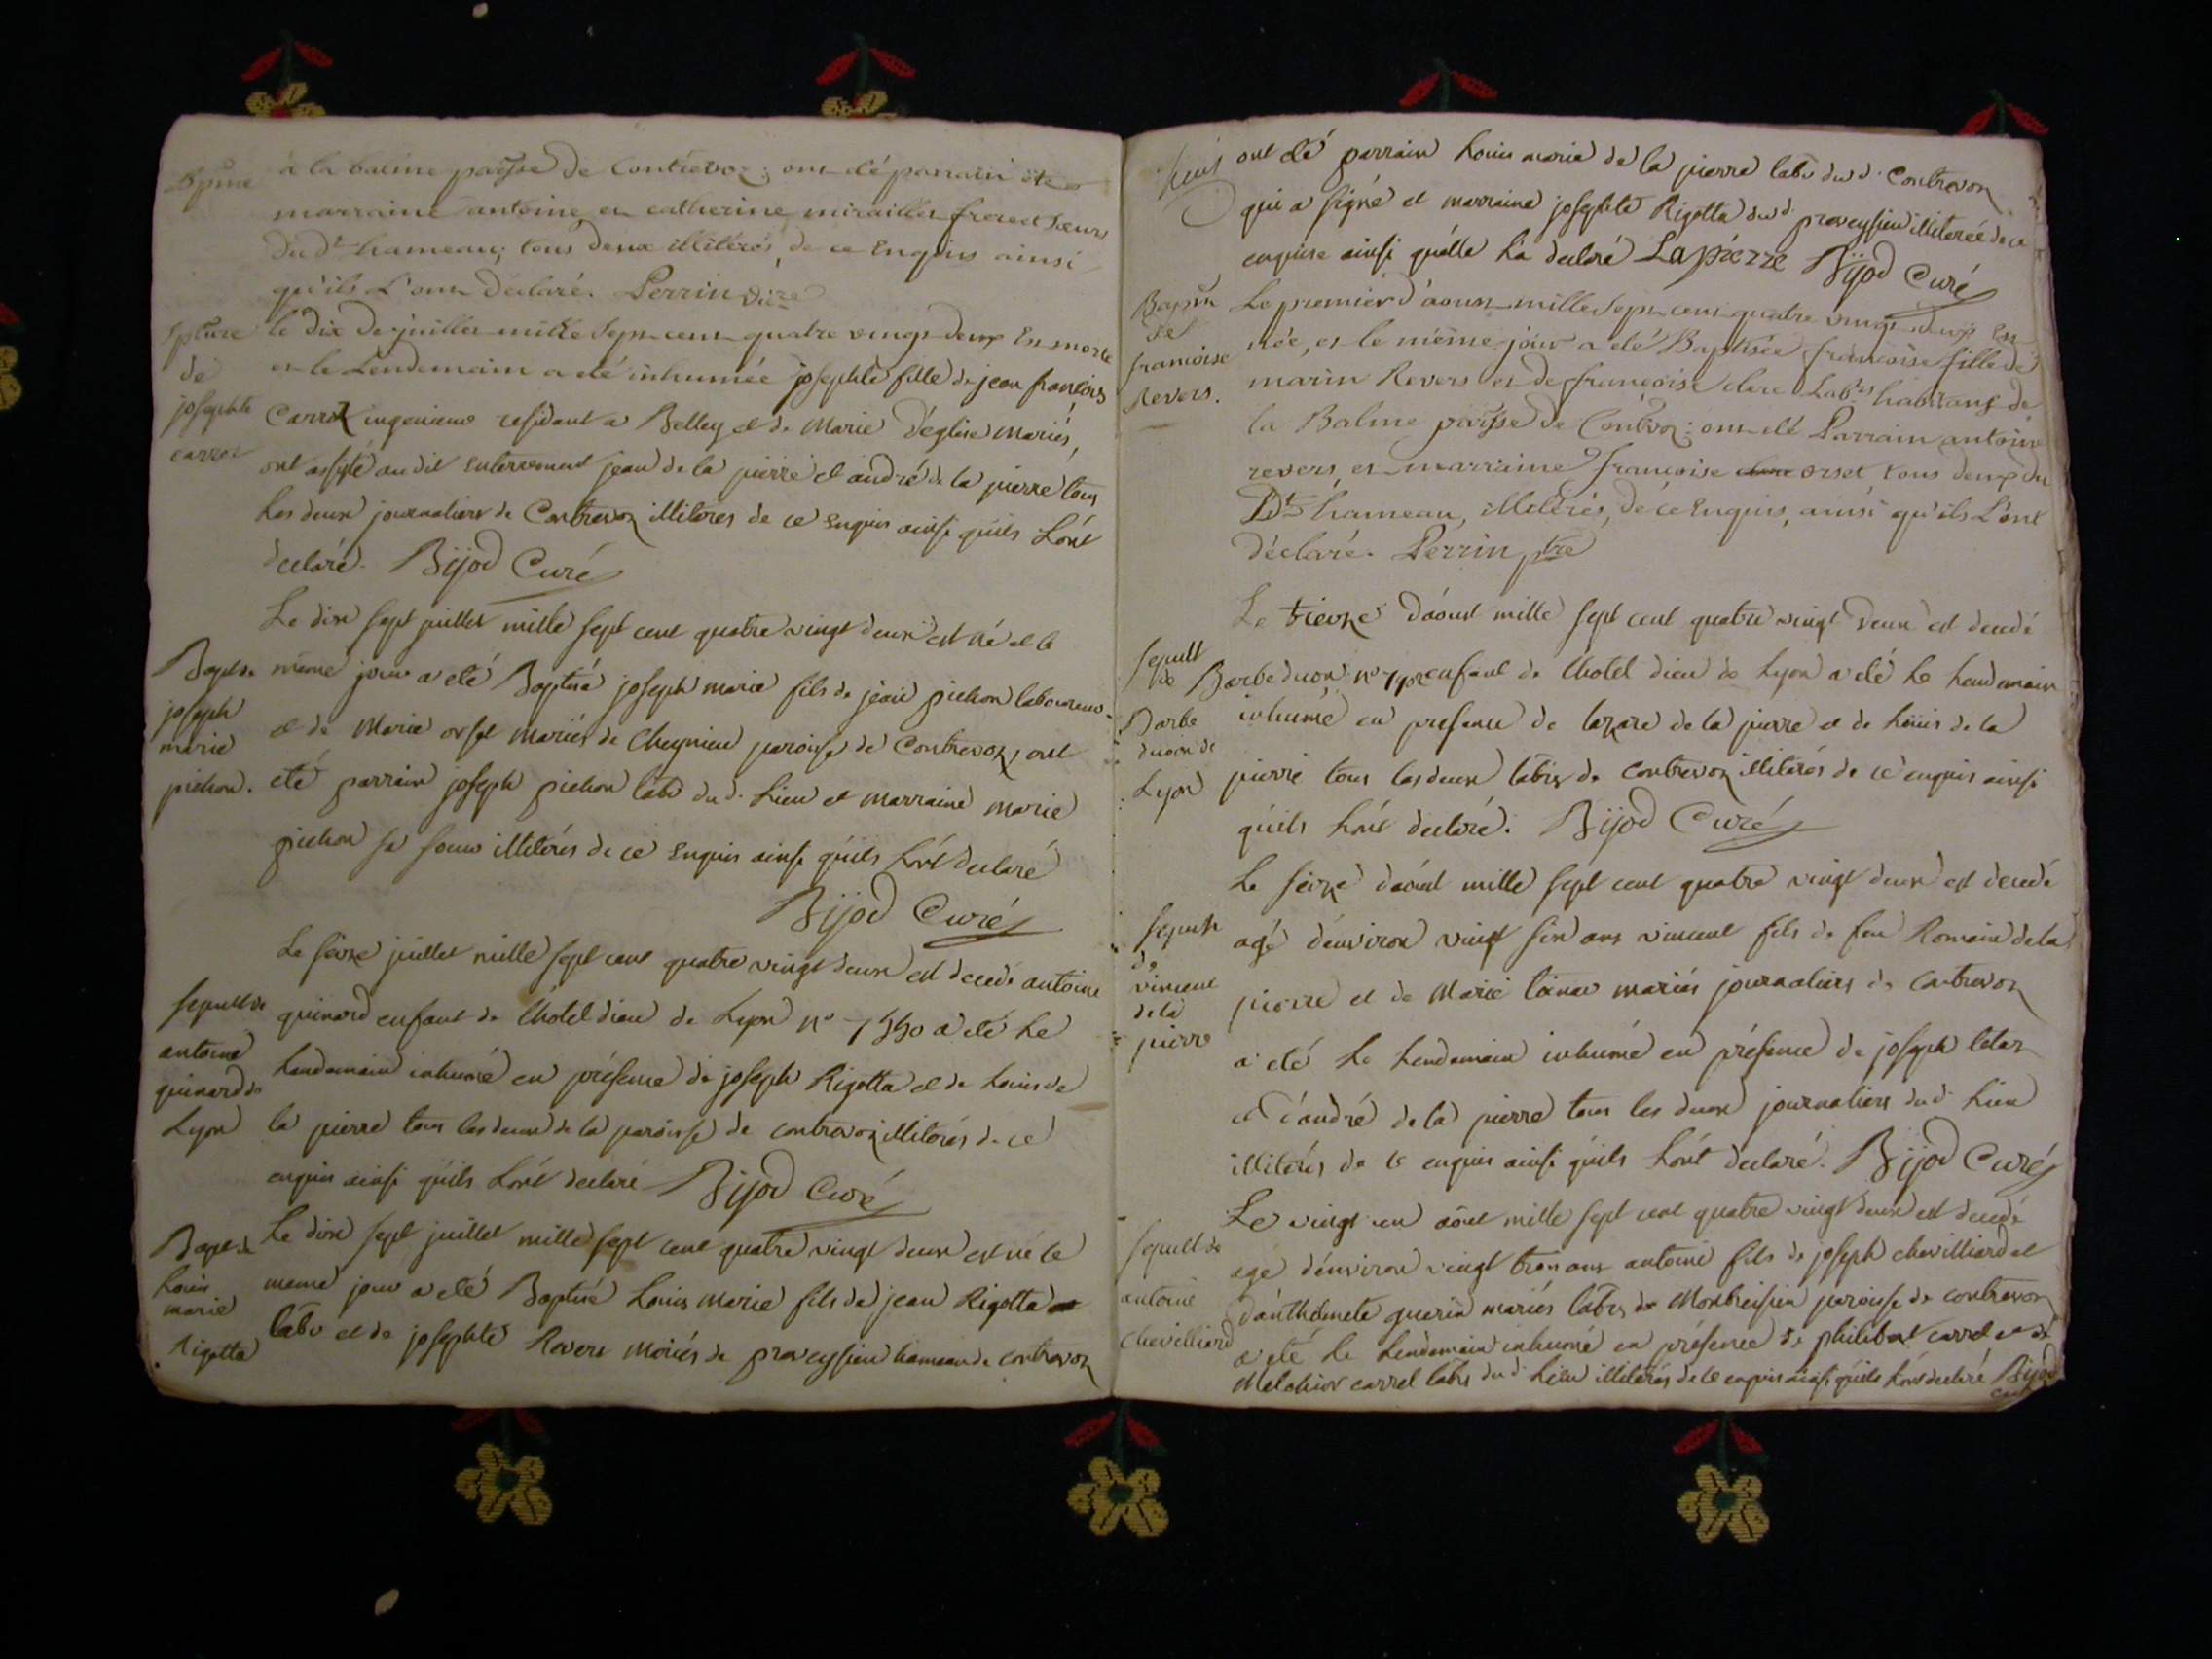 Bpme
à la balme pøisse de Contrevoz; ont été parrain et
marraine antoine et catherine mirailler frere et sœur
du dt hameau; tous deux illitérés, de ce Enquis ainsi
qu'ils L'ont Déclaré. Perrin
Spture
de
josephte
carrel
le dix de juillet mille sept cent quatre vingt deux Est morte
et le Lendemain a été inhumée josephte fille de jean françois
Carrel ingenieur residant a Belley et de Marie D'église mariés,
ont assisté au dit enterrement jean de la pierre et andré de la pierre tous
Les deux journaliers de Contrevoz illiteres de ce Enquis ainsi quils L'ont
declaré. Bijod Curé
Bapt de
joseph
marie
pichon.
Le dix sept juillet mille sept cent quatre vingt deux est né et le
même jour a eté Baptisé joseph marie fils de jean pichon laboureur
et de Marie orset mariés de Cheynieu paroisse de Contrevoz, ont
eté parrain joseph pichon labr du d. Lieu et marraine marie
pichon sa soeur illiterés de ce Enquis ainsi quils L'ont declaré
Bijod Curé
Sepult de
antoine
guinard de
Lyon
Le seize juillet mille sept cent quatre vingt deux est decedé antoine
guinard enfant de L'hotel dieu de Lyon n° a eté Le
Lendemain inhumé en présence de joseph Rigotta et de Louis de
la pierre tous les deux de la paroisse de contrevoz illiterés de ce
enquis ainsi quils L'ont declaré Bijod Curé
Bapt de
Louis
marie
Rigotta
Le dix sept juillet mille sept cent quatre vingt deux est né le
meme jour a eté Baptisé Louis marie fils de jean Rigotta
labr et de josephte Revers mariés de proveyssieu hameau de contrevoz
ont eté parrain Louis marie de la pierre labr du d. Contrevoz
qui a signé et marraine josephte Rigotta du d. proveyssieu illiterée de ce
enquise ainsi quélle L'a declaré Lapierre Bijod Curé
Bapm
de
francoise
Revers.
Le premier d'aoust mille sept cent quatre vingt deux Est
née, et le même jour a été Baptisée francoise fille de
marin Revers et de francoise clerc Labrs habitans de
la Balme pøisse de Contrevoz: ont été Parrain antoine
revers, et marraine francoise orset, tous deux du
Dt hameau, illitérés, de ce Enquis, ainsi qu'ils L'ont
déclaré. Perrin ptre
Sepult
de
Barbe
duon de
Lyon
Le trieze d'aoust mille sept cent quatre vingt deux est decedé
Barbe duon n° enfant de L'hotel dieu de Lyon a eté Le Lendemain
inhumé en presence de lazare de la pierre et de Louis de la
pierre tous les deux labrs de contrevoz illiterés de ce enquis ainsi
quils L'ont declaré. Bijod Curé
Sepult
de
vincent
de la
pierre
Le seize d'aout mille sept cent quatre vingt deux est decedé
agé d'environ vingt six ans vincent fils de feu Romain de la
pierre et de Marie mariés journaliers de Contrevoz
a eté Le Lendemain inhumé en présence de joseph
et d'andré de la pierre tous les deux journaliers du d. Lieu
illiterés de ce enquis ainsi quils L'ont declaré. Bijod Curé
Sepult de
antoine
Chevilliard
Le vingt un aout mille sept cent quatre vingt deux est decedé
agé d'environ vingt trois ans antoine fils de joseph chevilliard et
d'anthelmete guerin mariés labrs de Montbreisieu paroisse de contrevoz
a eté Le Lendemain inhumé en présence de philibert carrel et de
Melchior carrel labrs du d. Lieu illiterés de ce enquis ainsi quils L'ont declaré Bijod
curé